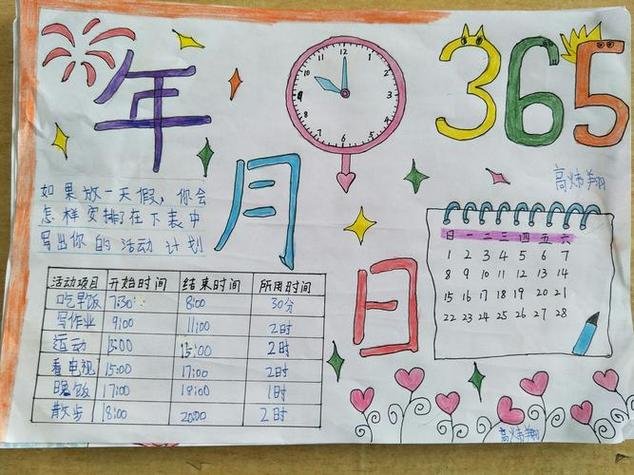 年
月
日
365
高炜翔
如果放一天假，你会
怎样安排？在下表中
写出你的活动计划
活动项目 开始时间 结束时间 所用时间
吃早饭 7:30 8:00 30分
写作业 9:00 11:00 2时
运动 13:00 15:00 2时
看电视 15:00 17:00 2时
晚饭 17:00 18:00 1时
散步 18:00 20:00 2时
日 一 二 三 四 五 六
1 2 3 4 5 6 7
8 9 10 11 12 13 14
15 16 17 18 19 20 21
22 23 24 25 26 27 28
12
3
6
9
高炜翔